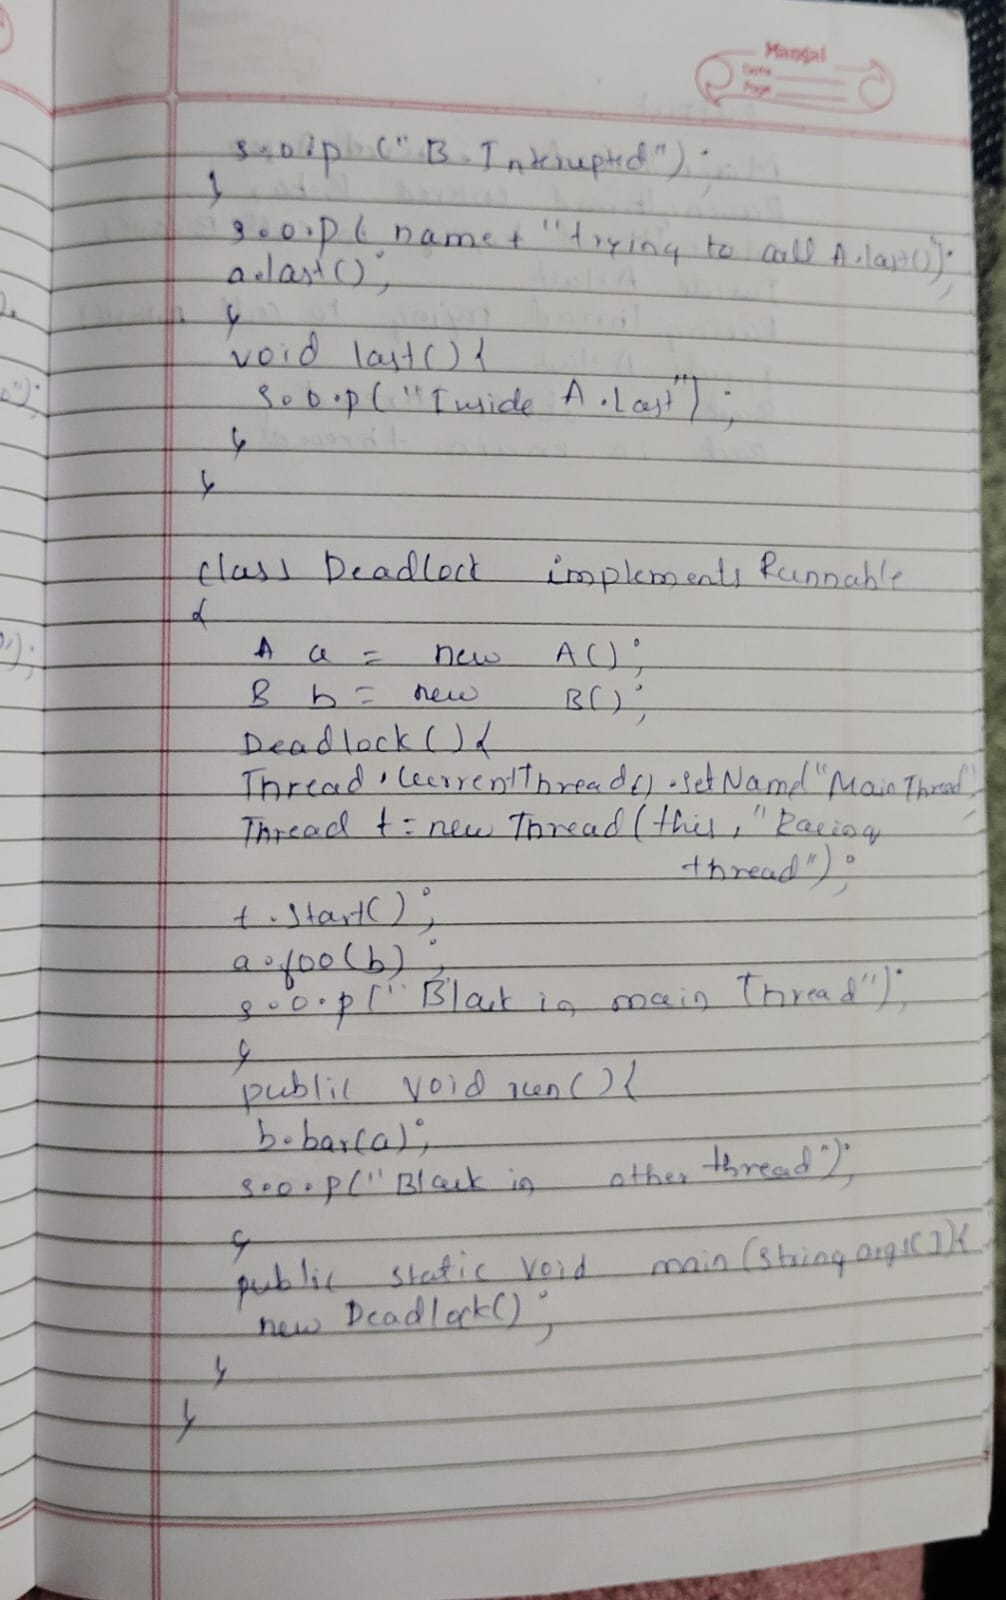 Mangal
Date
Page
s.o.p ("B Interrupted");
}
s.o.p ( name + "trying to call A.last()");
a.last();
}
void last() {
s.o.p ("Inside A.last");
}
}
class Deadlock implements Runnable
{
A a = new A();
B b = new B();
Deadlock () {
Thread.currentThread().setName("Main Thread"
Thread t = new Thread (this, "Racing
thread");
t.start();
a.foo(b);
s.o.p ("Back in main Thread");
}
public void run() {
b.bar(a);
s.o.p ("Back in other thread");
}
public static void main (String args[]) {
new Deadlock();
}
}